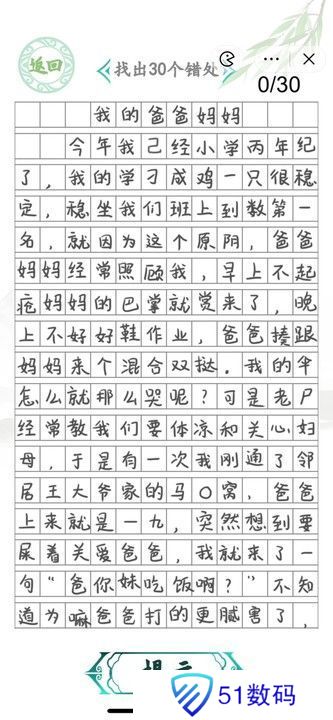 返回
找出30个错处
0/30
我的爸爸妈妈
今年我己经小学丙年纪
了，我的学刁成鸡一只很稳
定，稳坐我们班上到数第一
名，就因为这个原阴，爸爸
妈妈经常照顾我，早上不起
疤妈妈的巴掌就觉来了，晚
上不好好鞋作业，爸爸揍跟
妈妈来个混合双挞。我的伞
怎么就那么哭呢？可是老尸
经常教我们要体凉和关心妇
母，于是有一次我刚通了邻
居王大爷家的马〇窝，爸爸
上来就是一九，突然想到要
尿着关爱爸爸，我就来了一
句“爸你妹吃饭啊？”不知
道为嘛爸爸打的更腻害了，
提示
51数码